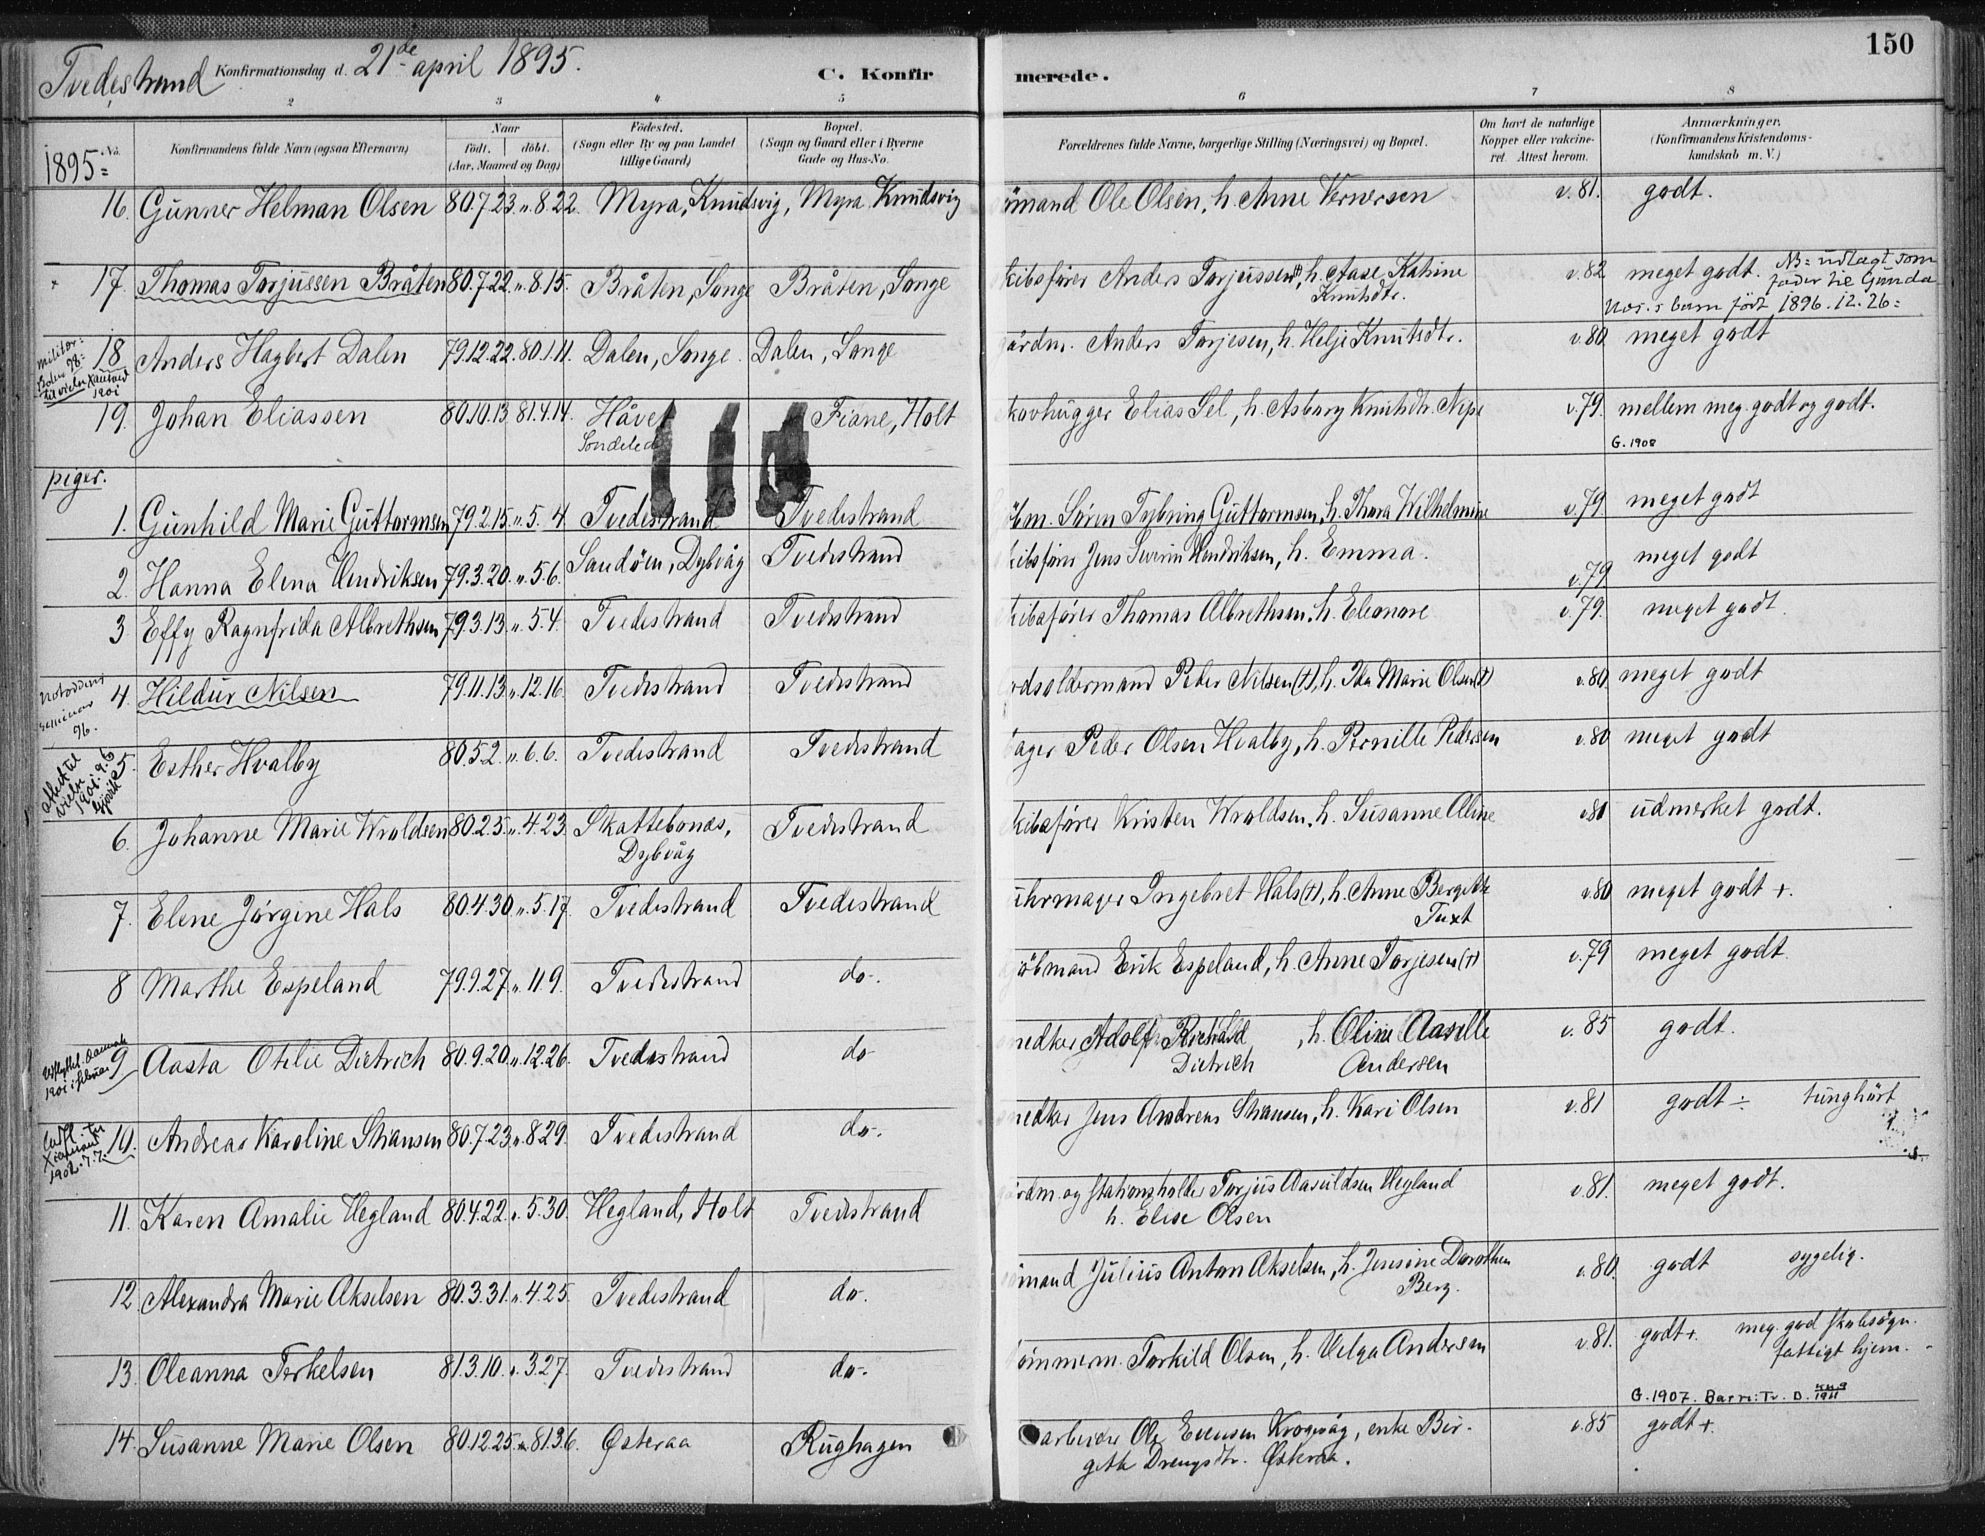 150
Tvedestrand Konfirmationsdag d. 21de april 1895. C. Konfirmerede.
2 3 4 5 6 7 8
1895 No. Konfirmandens fulde Navn (ogsaa Efternavn) Naar født. døbt. (Aar, Maaned og Dag) Fødested. (Sogn eller By og paa Landet tillige Gaard) Bopæl. (Sogn og Gaard eller i Byerne Gade og Hus-No. Forældrenes fulde Navne, borgerlige Stilling (Næringsvei) og Bopæl. Om havt de naturlige Kopper eller vakcineret. Attest herom. Anmærkninger. (Konfirmandens Kristendomskundskab m. V.)
16. Gunner Helman Olsen 80.7.23. „ 8.22. Myra, Knudsvig, Myra Knudsvig ömand Ole Olsen, h. Anne Vernersen v. 81. godt.
17. Thomas Torjussen Bråten 80.7.22. „ 8.15. Bråten, Songe Bråten, Songe kibsfører Anders Torjussen, h. Aase Katrine v. 82 meget godt. NB= udlagt som
Knutsdtr. fader til Gunda
barn født 1896.12.26=
18. Anders Hagbert Dalen 79.12.22. 80.1.11. Dalen, Songe. Dalen, Songe årdm. Anders Torjesen, h. Helje Knutsdtr. v. 80 meget godt
1901
19. Johan Eliassen 80.10.13. 81.4.14. Håvet Fiane, Holt kovhugger Elias Sel, h. Asborg Knutsdtr. v. 79. mellem meg. godt og godt.
Söndeled G. 1908
piger.
1. Gunhild Marie Guttormsen 79.2.15. „ 5.4 Tvedestrand Tvedestrand öbm. Sören Tybring Guttormsen, h. Thora Wilhelmine v. 79 meget godt
2. Hanna Elena Hendriksen 79.3.20. „ 5.6. Sandöen, Dybvåg Tvedestrand kibsfører Jens Severin Hendriksen, h. Emma. v. 79 meget godt
3 Effy Ragnfrida Albrethsen 79.3.13. „ 5.4. Tvedestrand Tvedestrand kibsfører Thomas Albrethsen, h. Eleonore v. 79. meget godt.
4. Hildur Nilsen 79.11.13. „ 12.16. Tvedestrand Tvedestrand odsoldermand Peder Nilsen (†), h. Ida Marie Olsen (†) v. 80 meget godt
96.
5. Esther Hvalby 80.5.2. „ 6.6. Tvedestrand Tvedestrand ager Peder Olsen Hvalby, h. Pernille Pedersen v. 80 meget godt
6. Johanne Marie Wroldsen 80.2.5. „ 4.23. Skottebonæs, Tvedestrand kibsfører Kristen Wroldsen, h. Susanne Aline v. 81 udmerket godt.
Dybvåg
7. Elene Jörgine Hals 80.4.30. „ 5.17. Tvedestrand Tvedestrand uhrmager Ingebret Hals (†), h. Anne Bergitte v. 80 meget godt +.
Tuxt
8 Marthe Espeland 79.9.27. „ 11.9. Tvedestrand do-. jöbmand Erik Espeland, h. Anne Torjesen (†) v. 79 meget godt.
9 Aasta Otilie Dietrich 80.9.20. „ 12.26. Tvedestrand do- nedker Adolf Richard , h. Oline Aasille v. 85 godt.
Dietrich Andersen
10. Andrea Karoline Thansen 80.7.23. „ 8.29. Tvedestrand do-. nedker Jens Andreas Thansen, h. Kari Olsen v. 81 godt ÷ tunghört
11. Karen Amalie Hegland 80.4.22. „ 5.30. Hegland, Holt Tvedestrand årdm. og stationsholder Torjus Aasuldsen Hegland v. 81. meget godt.
h. Elise Olsen
12 Alexandra Marie Akselsen 80.3.31. „ 4.25. Tvedestrand do-. ömand Julius Anton Akselsen, h. Jensine Dorothea v. 80. godt sygelig.
Berg.
13. Oleanna Terkelsen 81.3.10. „ 3.27. Tvedestrand do-. ömmerm. Torkild Olsen, h. Helga Andersen v. 81. godt +. meg. god skolesögn.
fattigt hjem.
G. 1907. Barn: Tv. D. 1911
14. Susanne Marie Olsen 80.12.25. 81.3.6. Østeraa Rughagen arbeider Ole Evensen Krogvåg, enke Bir- v. 85 godt +.
gitte Drengsdtr. Østeraa.